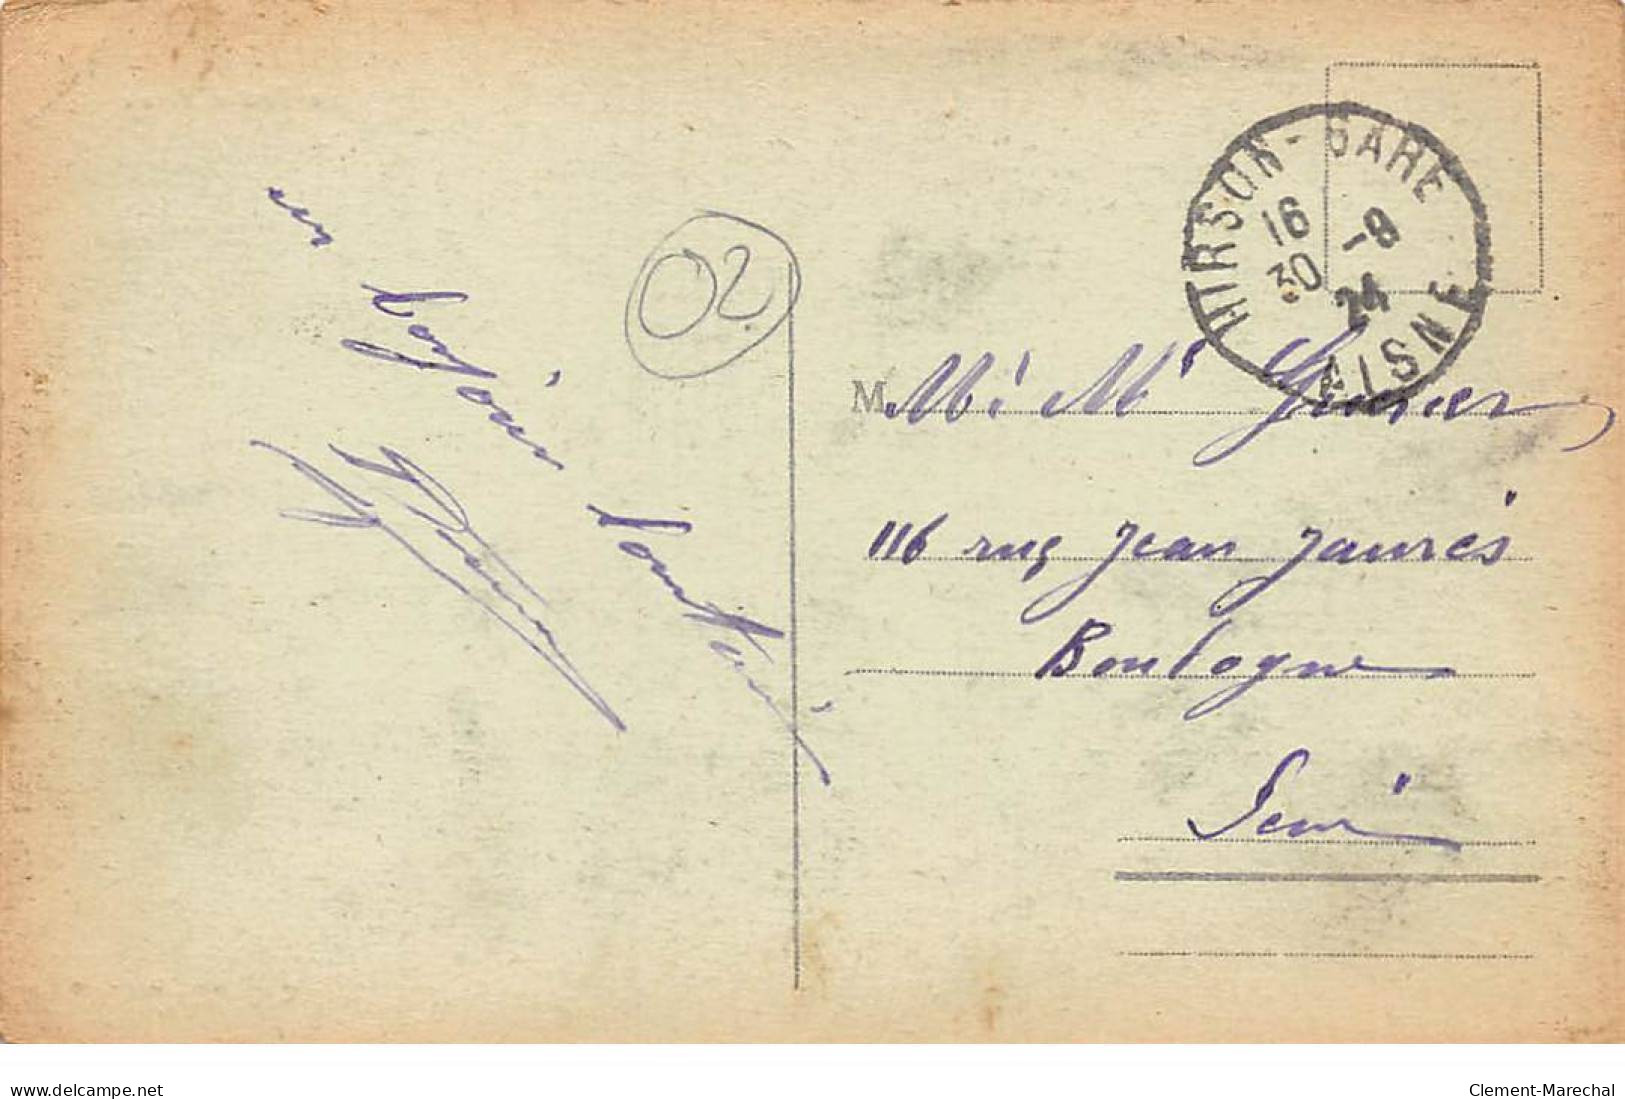 un bonjour
02
HIRSON-GARE
16
30
-8
24
AISNE
M
116 rue Jean Jaurés
Boulogne
Seine
www.delcampe.net
Clement-Marechal